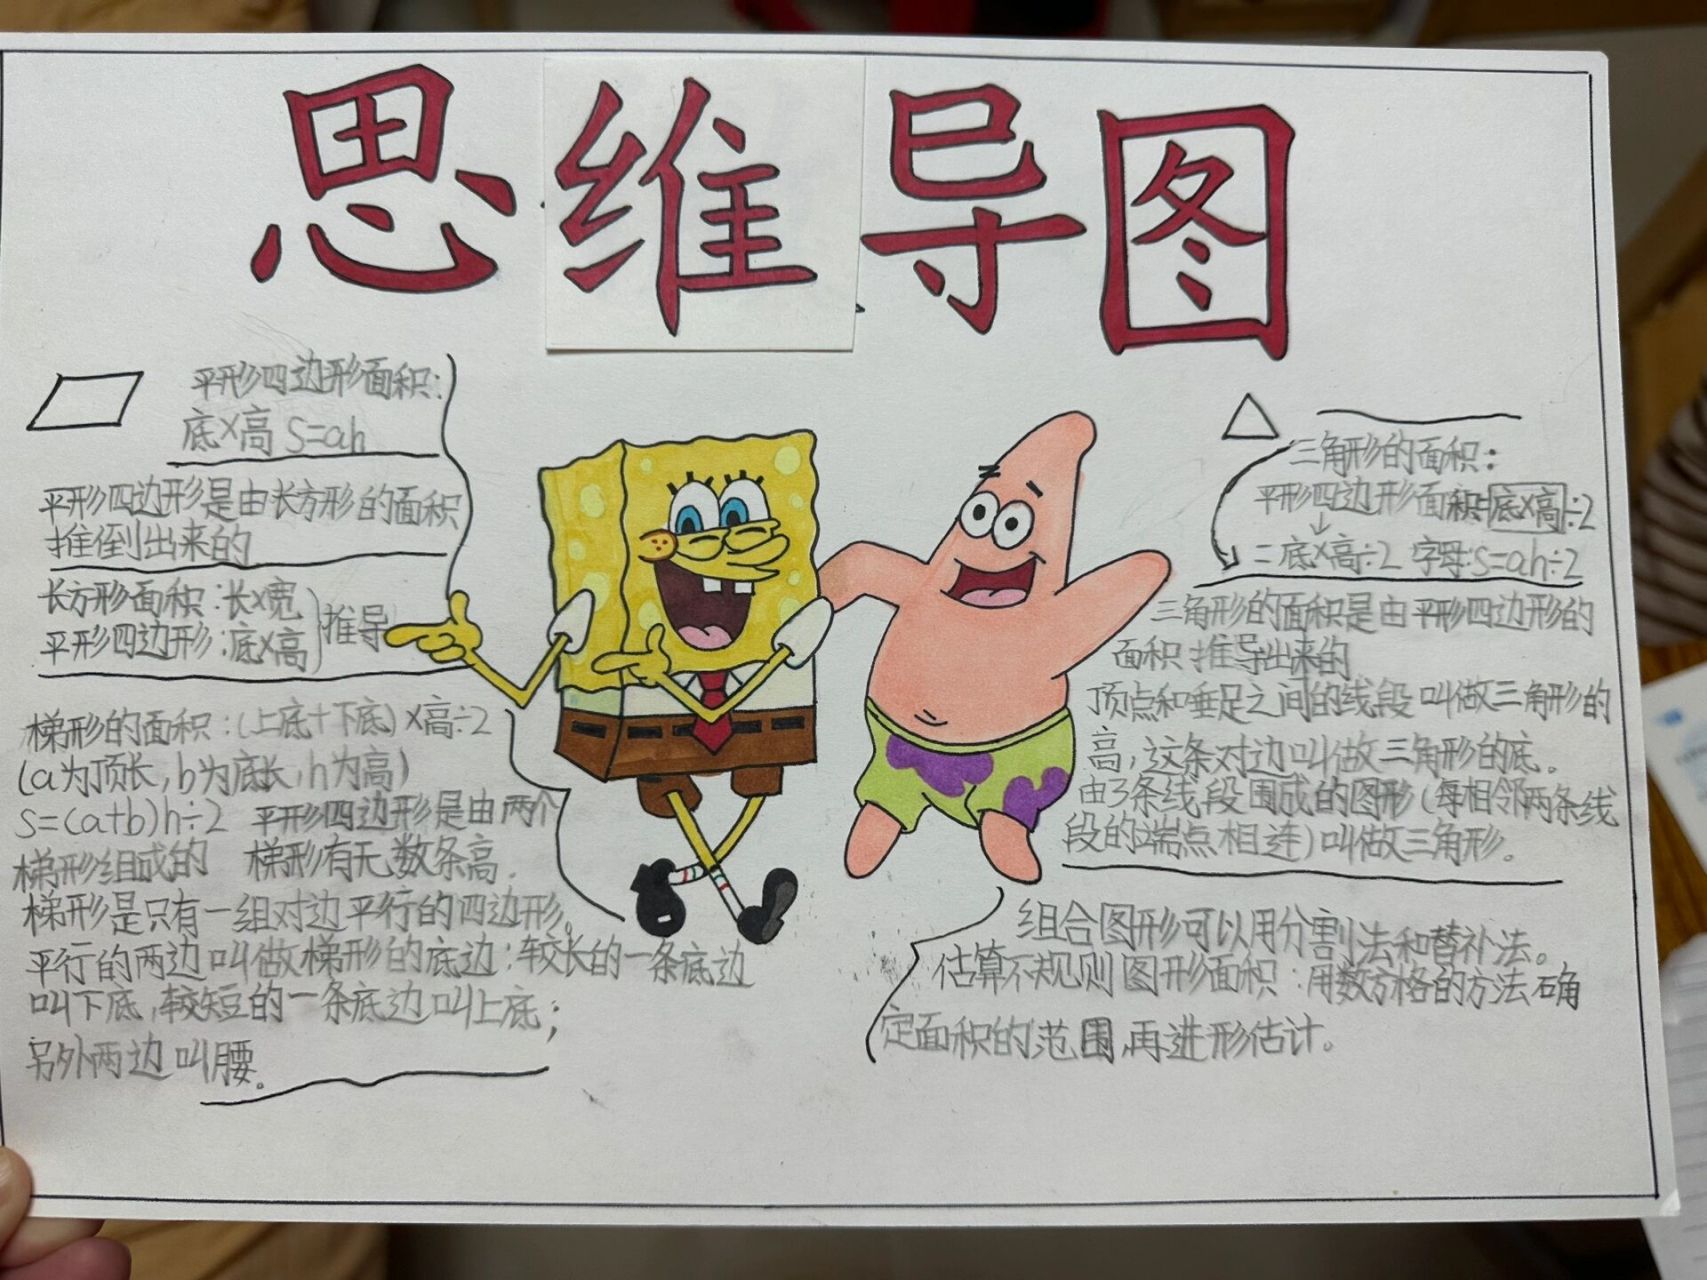 思维导图
平形四边形面积:
底×高 S=ah
平形四边形是由长方形的面积
推倒出来的
长方形面积:长×宽
平形四边形:底×高
推导
梯形的面积:(上底+下底)×高÷2
(a为顶长,b为底长,h为高)
S=(a+b)h÷2 平形四边形是由两个
梯形组成的 梯形有无数条高.
梯形是只有一组对边平行的四边形。
平行的两边叫做梯形的底边:较长的一条底边
叫下底,较短的一条底边叫上底;
另外两边叫腰。
三角形的面积:
平形四边形面积=底×高÷2
=底×高÷2 字母:S=ah÷2
三角形的面积是由平形四边形的
面积推导出来的
顶点和垂足之间的线段叫做三角形的
高,这条对边叫做三角形的底。
由3条线段围成的图形(每相邻两条线
段的端点相连)叫做三角形。
组合图形可以用分割法和替补法。
估算不规则图形面积:用数方格的方法确
定面积的范围,再进形估计。